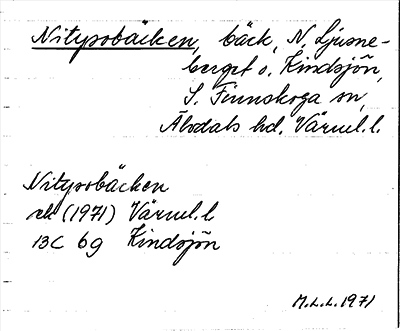 Nitypobäcken, bäck, N. Ljusne-
berget o. Kindsjön,
S. Finnskoga sn,
Älvdals hd, Värml. l.
Nitypobäcken
ek (1971) Värml. l.
13C 6g Kindsjön
M.L.L. 1971